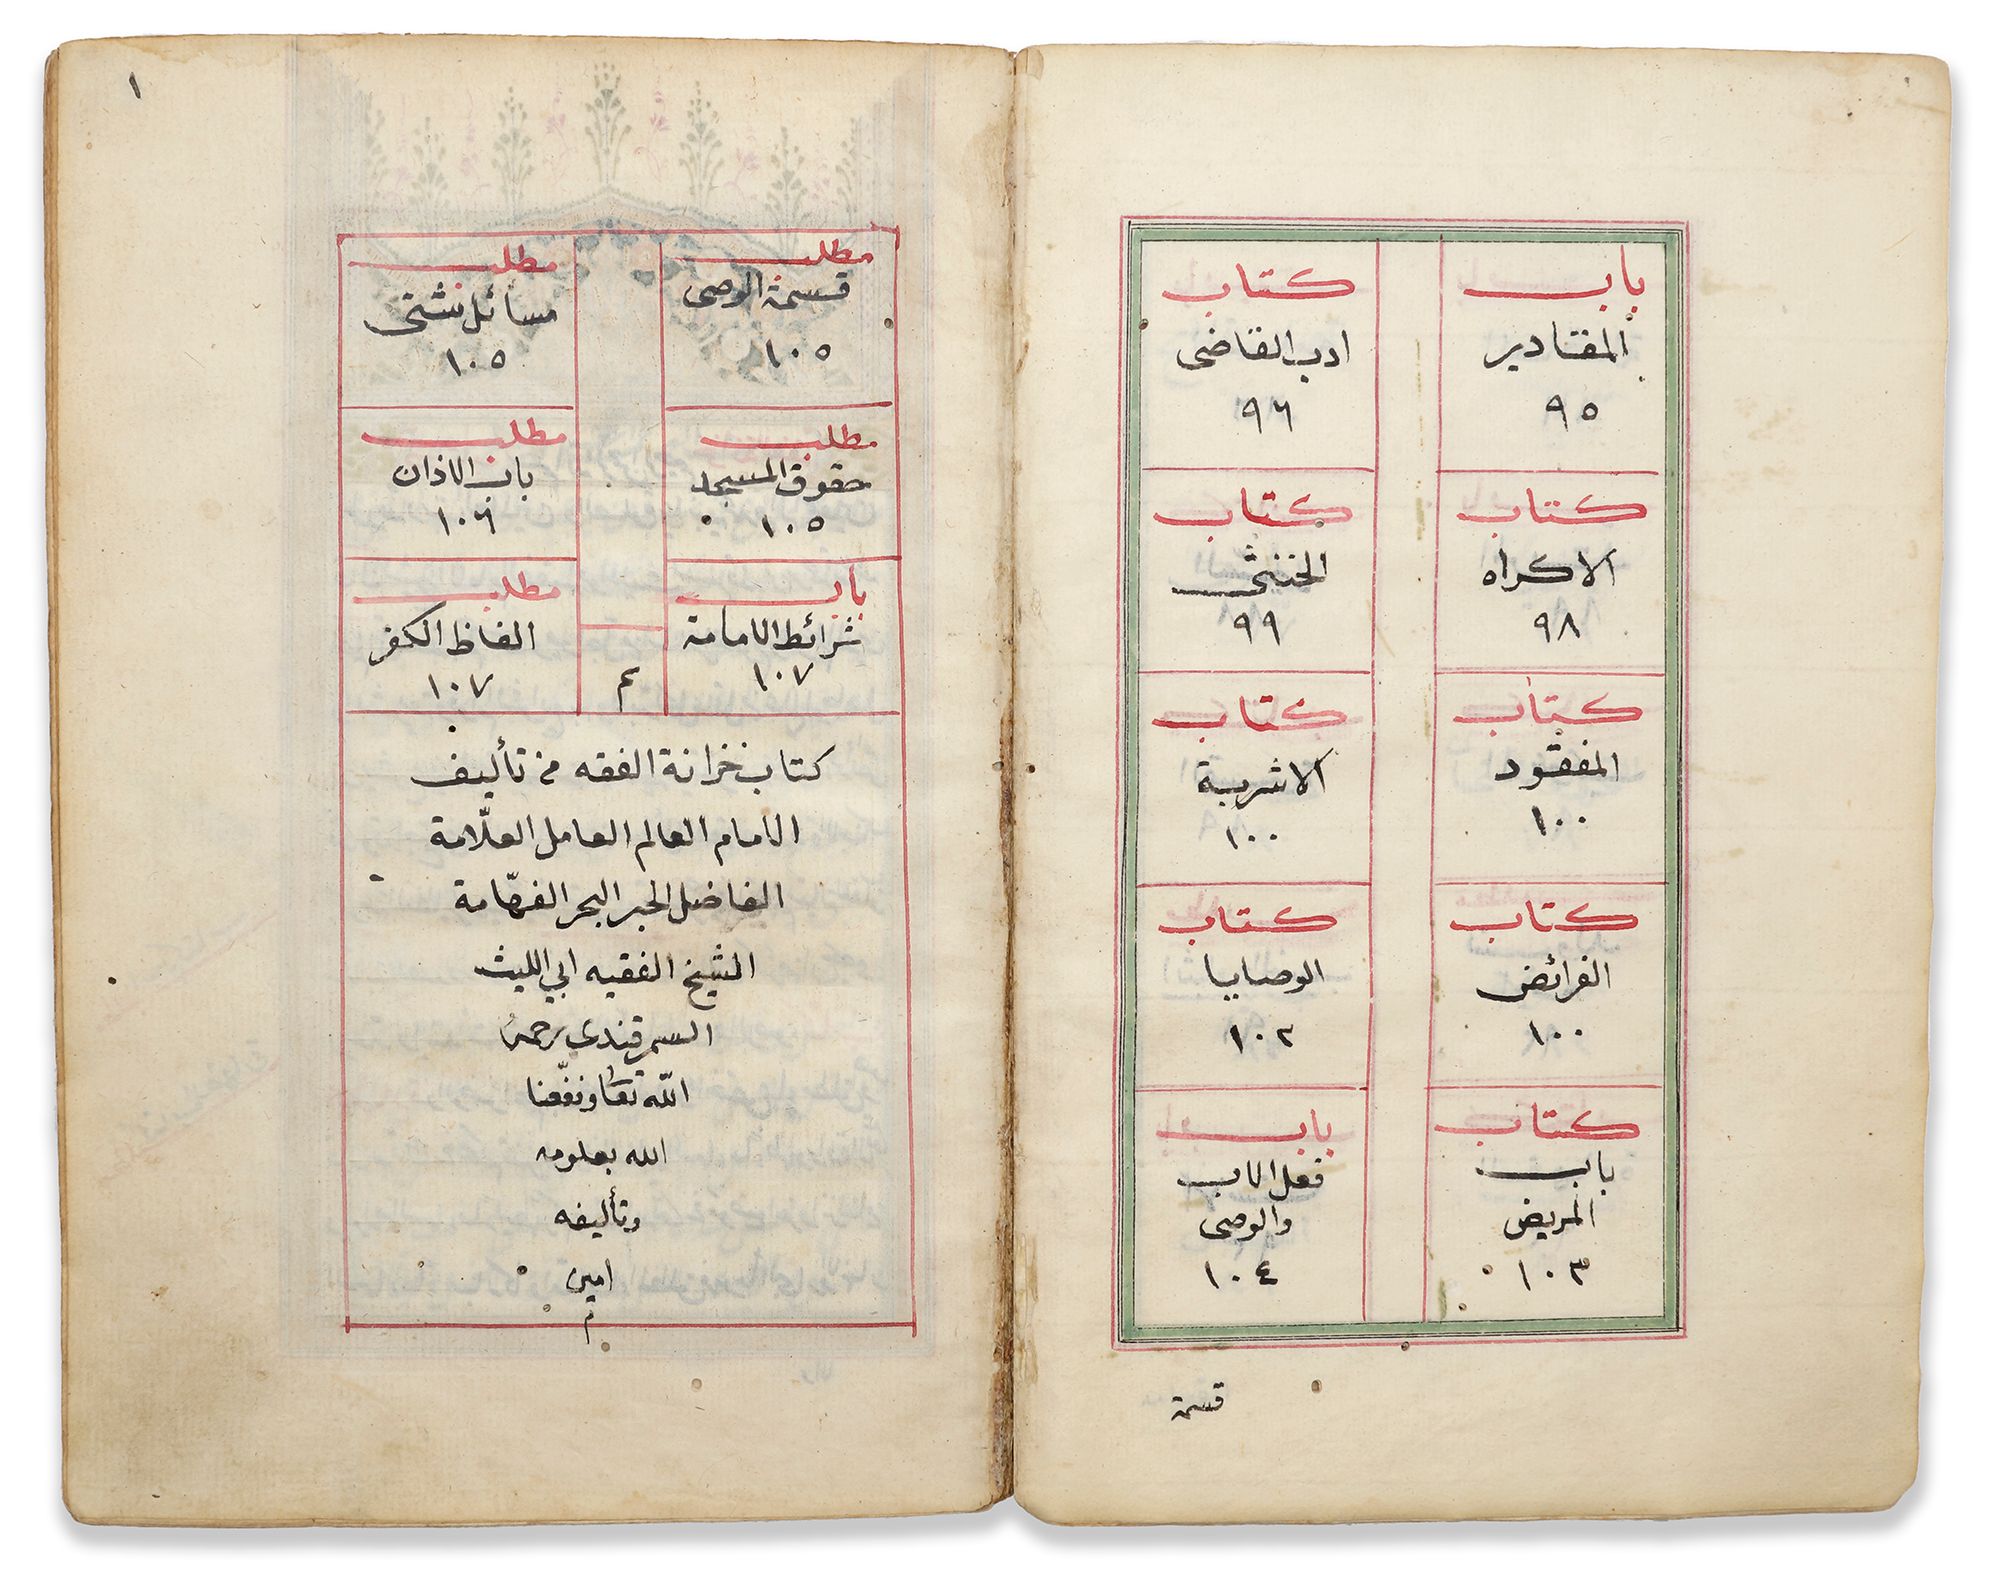 باب
المقادير
٩٥
كتاب
ادب القاضى
٩٦
كتاب
الاكراه
٩٨
كتاب
الخنثى
٩٩
كتاب
المفقود
١٠٠
كتاب
الاشربة
١٠٠
كتاب
الفرائض
١٠٠
كتاب
الوصايا
١٠٢
كتاب
باب
المريض
١٠٣
باب
فعل الاب
والوصى
١٠٤
قسمة
١
مطلب
قسمة الوصى
١٠٥
مطلب
مسائل شتى
١٠٥
مطلب
حقوق المسجد
١٠٥
مطلب
باب الاذان
١٠٦
باب
شرائط الامامة
١٠٧
مطلب
الفاظ الكفر
١٠٧
م
كتاب خزانة الفقه من تأليف
الامام العالم العامل العلّامة
الفاضل الحبر البحر الفهّامة
الشيخ الفقيه ابي الليث
السمرقندى رحمه
اللّه تعا ونفّعنا
الله بعلومه
وتأليفه
امين
م